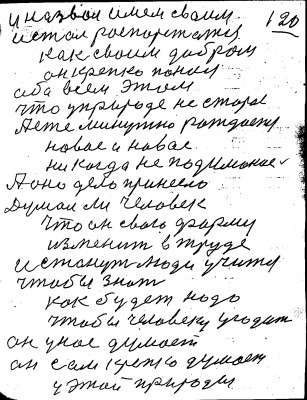 и назвал имем своим 120
и стал роспорежатся
как своим добром
он крепко понял
оба всем этом
что у природе не старое
А ете минутно рождается
новое и новае
никогда не подимаюе
А оно дело принесло
Думал ли человек
что он свого форму
изменит в труде
и станут люди учится
чтобы знат
как будет надо
чтобы человеку угодит
он у нас думает
он сам крепко думает
у этой природы